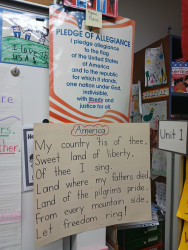 I love
USA
PLEDGE OF ALLEGIANCE
I pledge allegiance
to the flag
of the United
States of
America
and to the republic
for which it stands,
one nation under God,
indivisible,
with liberty and
justice for all.
America
My country 'tis of thee,
Sweet land of liberty,
Of thee I sing.
Land where my fathers died
Land of the pilgrims pride
From every mountain side,
Let freedom ring!
Unit 1